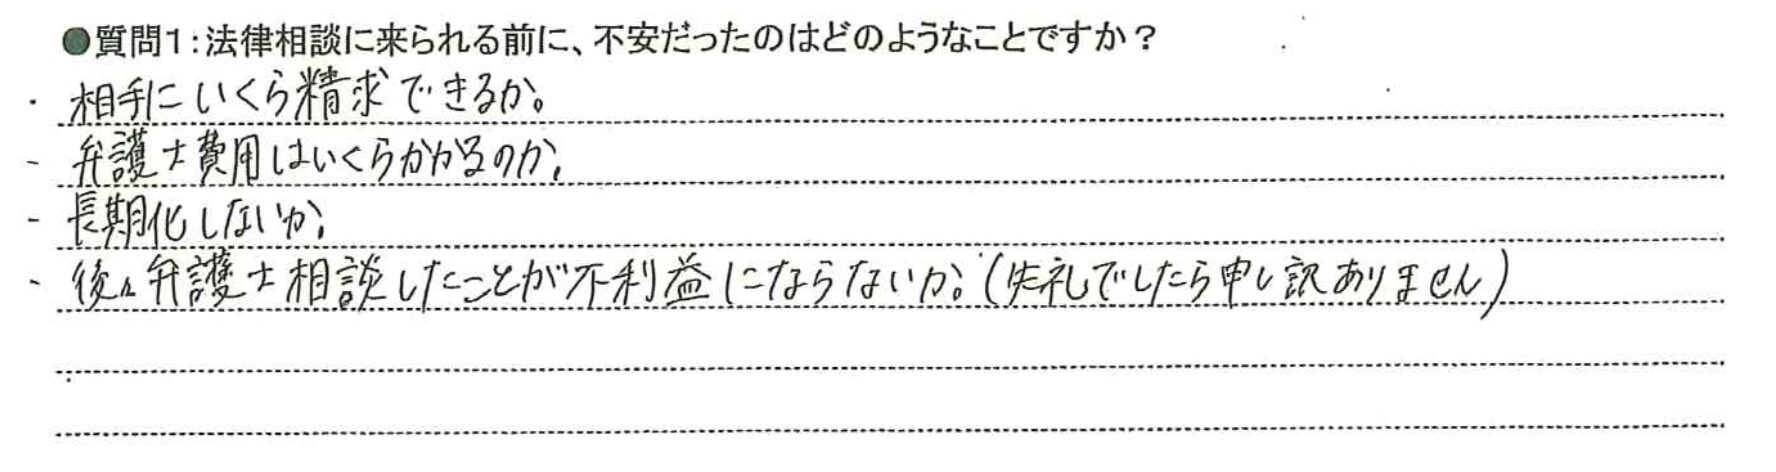 ●質問1:法律相談に来られる前に、不安だったのはどのようなことですか?
・相手にいくら精求できるか。
- 弁護士費用はいくらかかるのか。
- 長期化しないか。
- 後々弁護士相談したことが不利益にならないか。(失礼でしたら申し訳ありません)